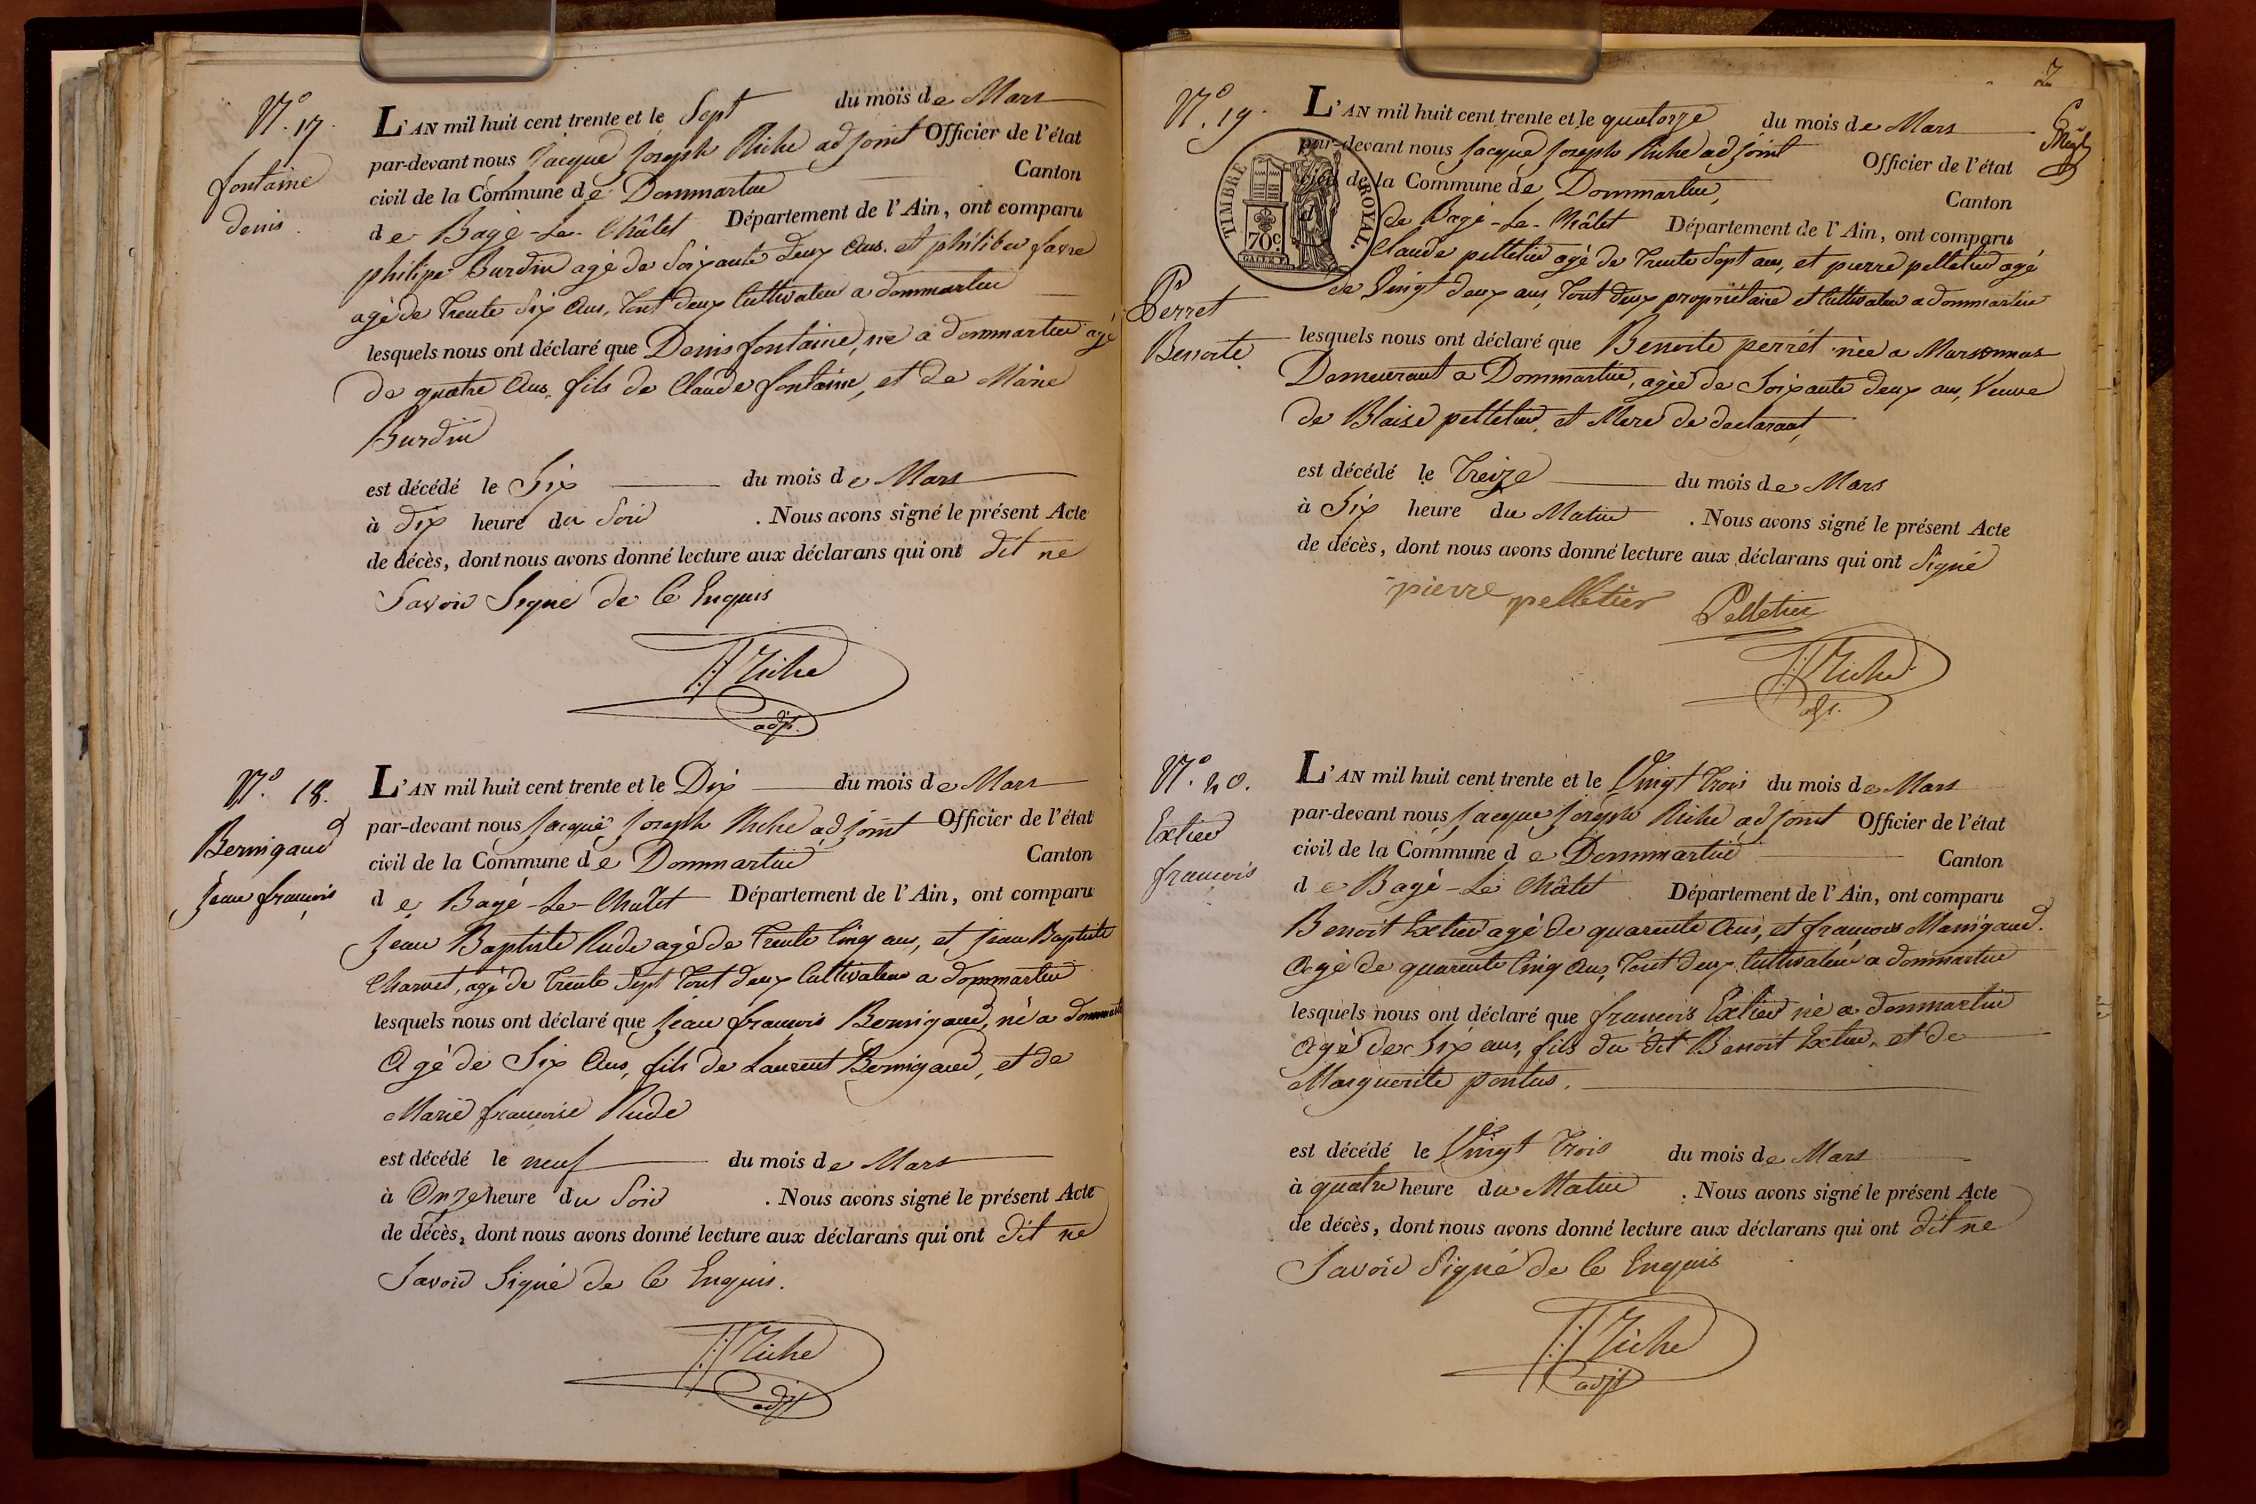 N.° 17.
fontaine
denis.
L'AN mil huit cent trente et le Sept du mois de Mars
par-devant nous Jacque Joseph Riche adjoint Officier de l'état
civil de la Commune de Dommartin Canton
de Bagé-Le-Châtel Département de l'Ain, ont comparu
philipe Burdin agé de Soixante deux Ans. et philiber favre
agé de trente Six Ans, tout deux Cultivateur a dommartin
lesquels nous ont déclaré que Denis fontaine, né a dommartin agé
de quatre Ans, fils de Claude fontaine, et de Marie
Burdin
est décédé le Six du mois de Mars
à dix heure du Soir . Nous avons signé le présent Acte
de décès, dont nous avons donné lecture aux déclarans qui ont dit ne
Savoir Signé de Ce Enquis
J:J Riche
adjt.
N.° 18.
Bernigaud
Jean françois
L'AN mil huit cent trente et le Dix du mois de Mars
par-devant nous Jacque Joseph Riche adjoint Officier de l'état
civil de la Commune de Dommartin Canton
de Bagé-Le-Châtel Département de l'Ain, ont comparu
Jean Baptiste Rude agé de trente Cinq ans, et jean Baptiste
Charvet, agé de trente Sept tout deux Cultivateur a dommartin
lesquels nous ont déclaré que Jean françois Bernigaud, né a dommartin
Agé de Six Ans, fils de Laurent Bernigaud, et de
Marie françoise Rude
est décédé le neuf du mois de Mars
à Onze heure du Soir . Nous avons signé le présent Acte
de décès, dont nous avons donné lecture aux déclarans qui ont dit ne
Savoir Signé de Ce Enquis.
J:J Riche
adjt
7
N.° 19.
Perret
Benoite
TIMBRE ROYAL.
70c
L'AN mil huit cent trente et le quatorze du mois de Mars
par-devant nous Jacque Joseph Riche adjoint Officier de l'état
civil de la Commune de Dommartin, Canton
de Bagé-Le-Châtel Département de l'Ain, ont comparu
Claude pelletier agé de trente Sept ans, et pierre pelletier agé
de Vingt deux ans, tout deux propriétaire et Cultivateur a dommartin
lesquels nous ont déclaré que Benoite perrét née a Marsonnas
Demeurant a Dommartin, agée de Soixante deux ans, Veuve
de Blaise pelletier, et Mere de declarant,
est décédé le treize du mois de Mars
à Six heure du Matin . Nous avons signé le présent Acte
de décès, dont nous avons donné lecture aux déclarans qui ont Signé
pierre pelletier Pelletier
J:J Riche
adjt.
N.° 20.
Extier
francois
L'AN mil huit cent trente et le Vingt trois du mois de Mars
par-devant nous Jacque Joseph Riche adjoint Officier de l'état
civil de la Commune de Dommartin Canton
de Bagé-Le Châtel Département de l'Ain, ont comparu
Benoit Extier agé de quarente Ans, et francois Manigaud.
Agé de quarente Cinq Ans, tout deux Cultivateur a dommartin
lesquels nous ont déclaré que francois Extier né a dommartin
Agé de Six ans, fils du dit Benoit Extier, et de
Marguerite pontus.
est décédé le Vingt trois du mois de Mars
à quatre heure du Matin . Nous avons signé le présent Acte
de décès, dont nous avons donné lecture aux déclarans qui ont dit ne
Savoir Signé de Ce Enquis
J:J Riche
adjt